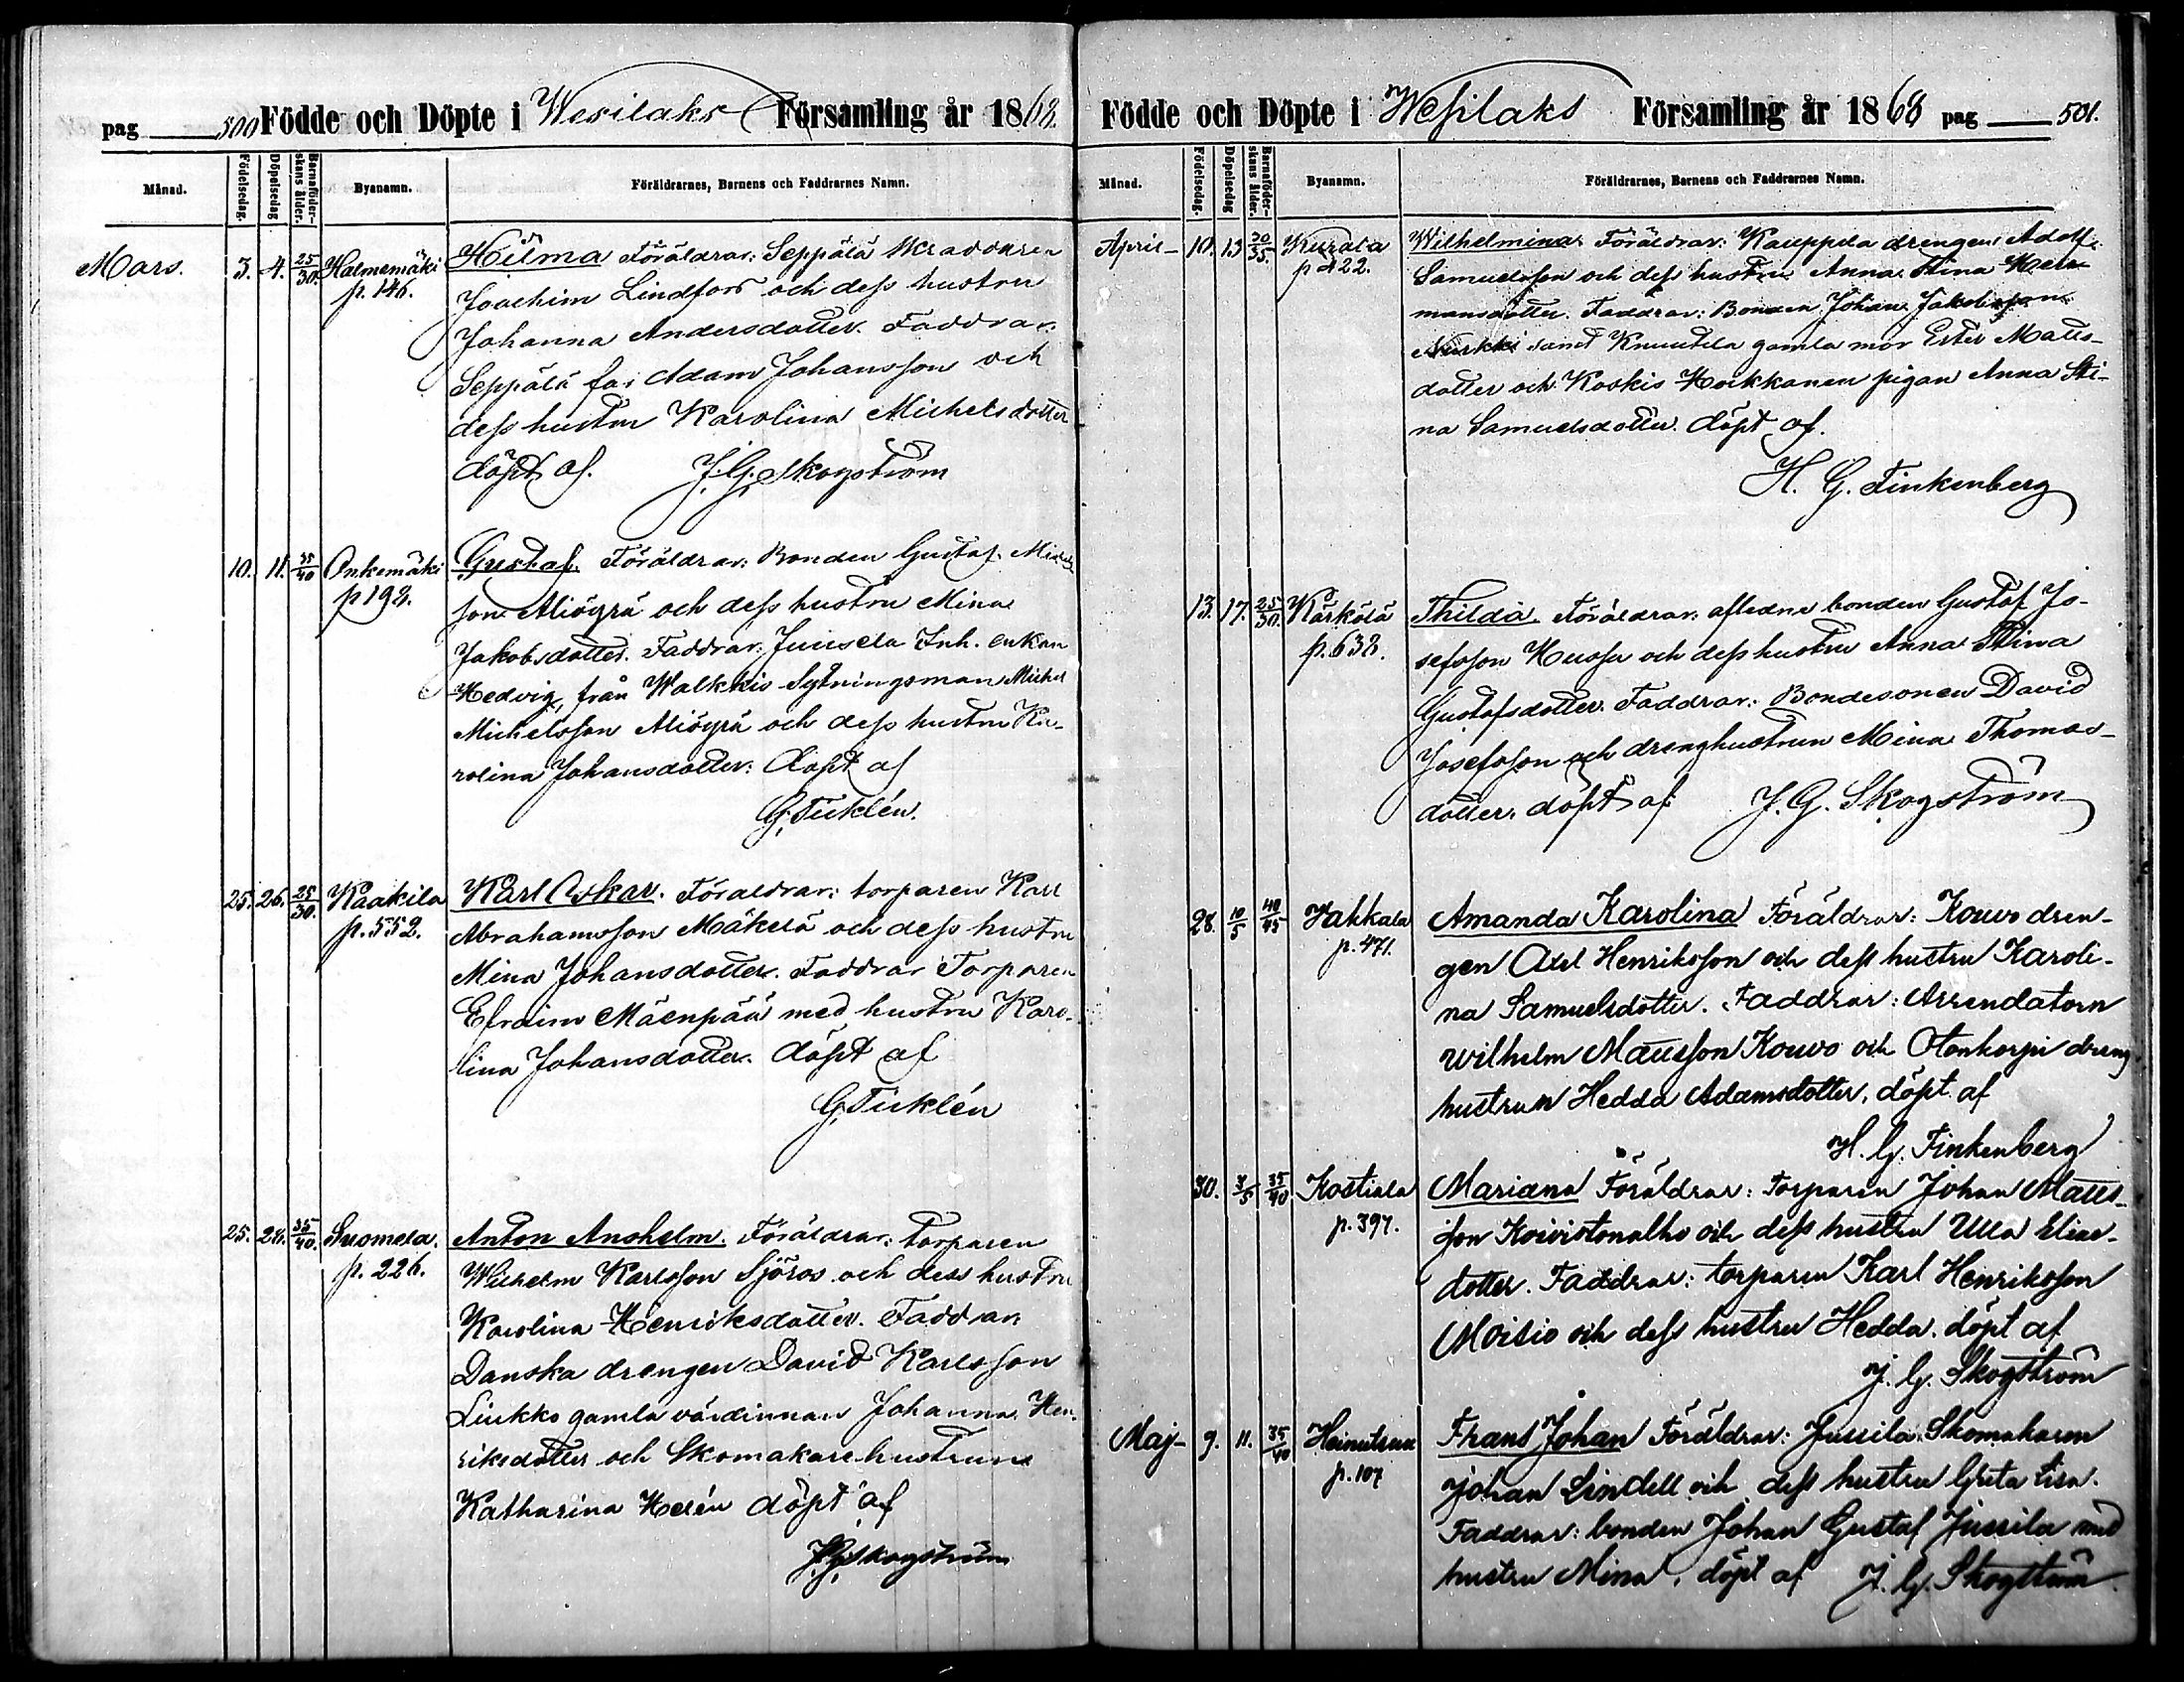 pag 500 Födde och Döpte i Wesilaks Församling år 1868.
Månad. Födelsedag. Döpelsedag Barnaföder-skans ålder. Byanamn. Föräldrarnes, Barnens och Faddrarnes Namn.
Mars. 3. 4. 25/30. Halmemäki Hilma Föräldrar: Seppälä Skraddaren
p. 146. Joachim Lindfors och dess hustru
Johanna Andersdotter. Faddrar:
Seppälä far Adam Johansson och
dess hustru Karolina Michelsdotter
döpt af. J. G. Skogström
10. 11. 35/40 Onkemäki Gustaf. Föräldrar: Bonden Gustaf Michels
p 198. son Aliögrä och dess hustru Mina
Jakobsdotter. Faddrar: Junsela Inh. enkan
Hedvig, från Walkkis Sytningsman Michel
Michelsson Aliögrä och dess hustru Ka-
rolina Johansdotter: döpt af
G. Ticklén.
25. 26. 25/30. Kaakila Karl Oskar. Föräldrar: torparen Karl
p. 552. Abrahamsson Mäkelä och dess hustru
Mina Johansdotter. Faddrar Torparen
Efraim Mäenpää med hustru Karo-
lina Johansdotter. döpt af
G. Ticklén
25. 28. 35/40. Suomela. Anton Anshelm. Föräldrar: Torparen
p. 226. Wilhelm Karlsson Sjöros och dess hustru
Karolina Henriksdotter. Faddrar:
Danska drengen David Karlsson
Liukko gamla värdinnan Johanna Hen-
riksdotter och Skomakarehustrun
Katharina Helén döpt af
J. G. Skogström
Födde och Döpte i Wesilaks Församling år 1868 pag 501.
Månad. Födelsedag. Döpelsedag Barnaföder-skans ålder. Byanamn. Föräldrarnes, Barnens och Faddrarnes Namn.
April 10. 13 30/35. Kurala Wilhelmina Föräldrar: Kauppila drengen Adolf
p 422. Samuelsson och dess hustru Anna Stina Her-
mansdotter. Faddrar: Bonden Johan Jakobsson
Nurkki samt Knuutila gamla mor Ester Matts-
dotter och Koskis Hoikkanen pigan Anna Sti-
na Samuelsdotter. döpt af.
H. G. Finkenberg
13. 17. 25/30. Kärkölä Thilda. Föräldrar: afledne bonden Gustaf Jo-
p. 638. sefsson Huosu och dess hustru Anna Stina
Gustafsdotter. Faddrar: Bondesonen David
Josefsson och drenghustrun Mina Thomas-
dotter. döpt af J. G. Skogström
28. 10/5 40/45 Hakkala Amanda Karolina Föräldrar: Kouvo dren-
p. 471. gen Axel Henriksson och dess hustru Karoli-
na Samuelsdotter. Faddrar: Arrendatorn
Wilhelm Mattsson Kouvo och Otonkorpi dreng
hustrun Hedda Adamsdotter, döpt af
H. G. Finkenberg
30. 3/5 35/40 Kostiala Mariana Föräldrar: Torparen Johan Matts-
p. 397. son Koivistonalho och dess hustru Ulla Elias-
dotter. Faddrar: torparen Karl Henriksson
Moisio och dess hustru Hedda. döpt af
J. G. Skogström
Maj 9. 11. 35/40 Heinutsuu Frans Johan Föräldrar: Jussila Skomakaren
p. 107 Johan Lindell och dess hustru Greta Lisa.
Faddrar: bonden Johan Gustaf Jussila med
hustru Mina, döpt af J. G. Skogström